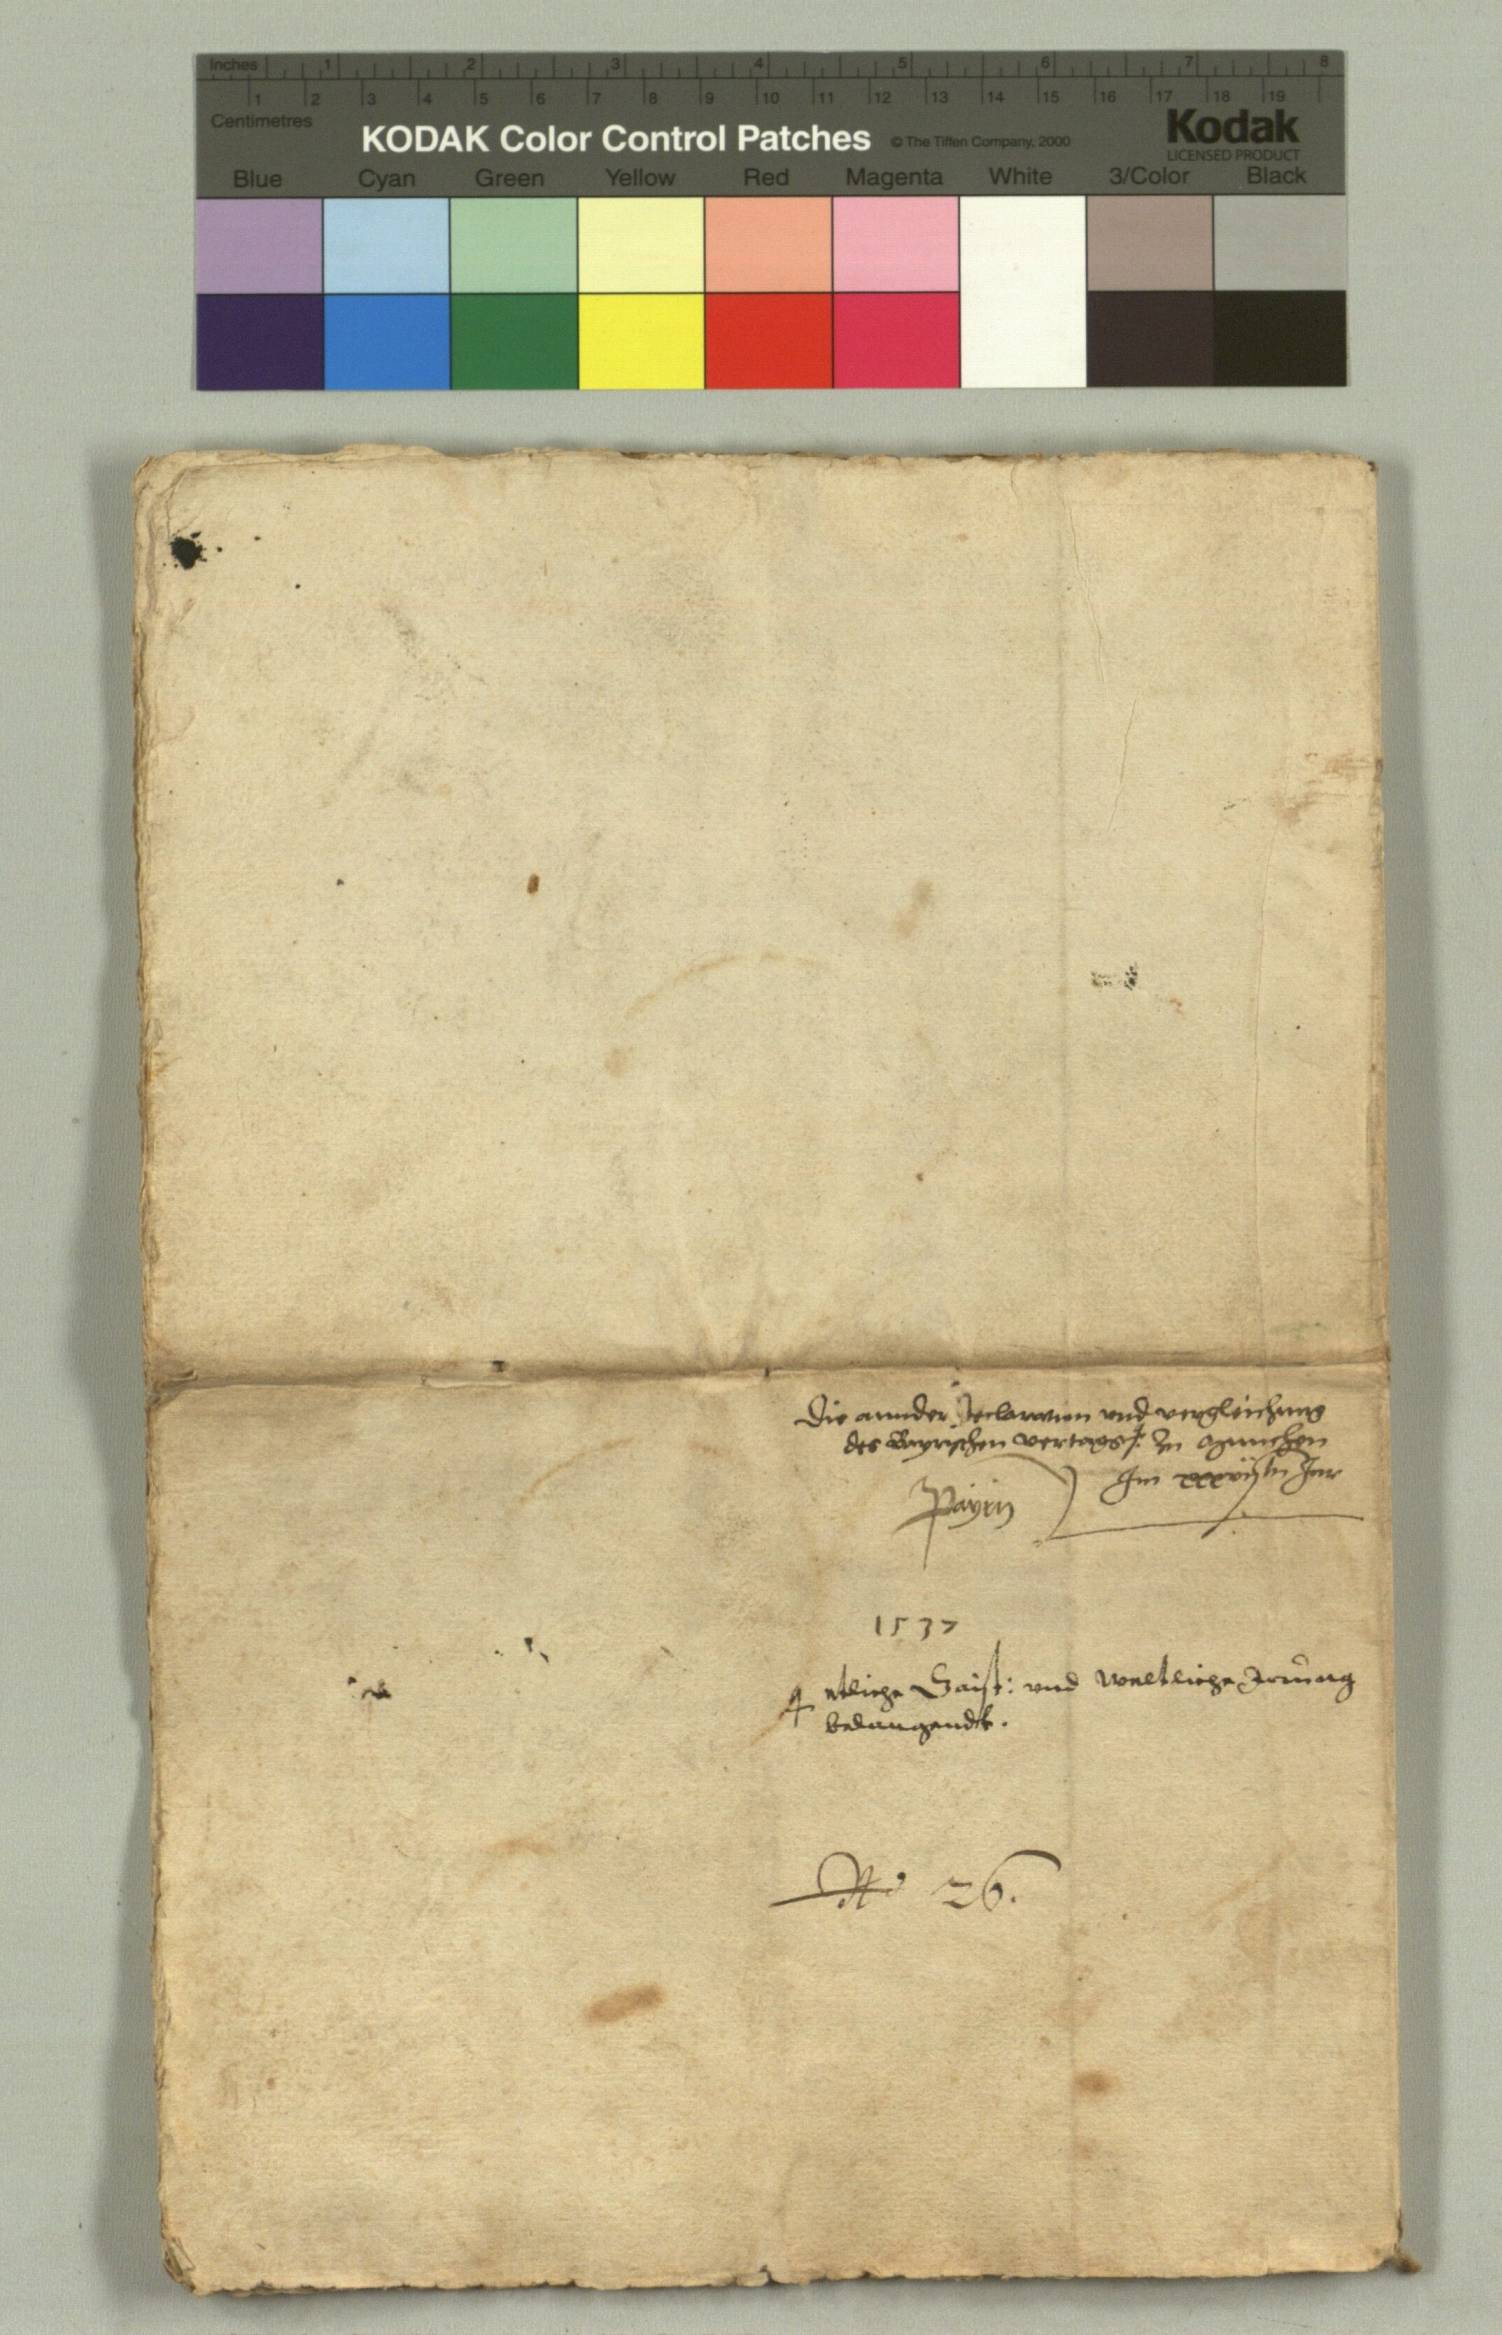 Inches 1 2 3 4 5 6 7 8
1 2 3 4 5 6 7 8 9 10 11 12 13 14 15 16 17 18 19
Centimetres
KODAK Color Control Patches © The Tiffen Company, 2000 Kodak
LICENSED PRODUCT
Blue Cyan Green Yellow Red Magenta White 3/Color Black
Die annder Declaration vnd vergleichung
des Bayrischen vertrags zu Munchen
Im xxxvij ten Jar
Payrn
1537
etliche Gaist: vnd Weltliche Irrung
belangendt.
No 26.